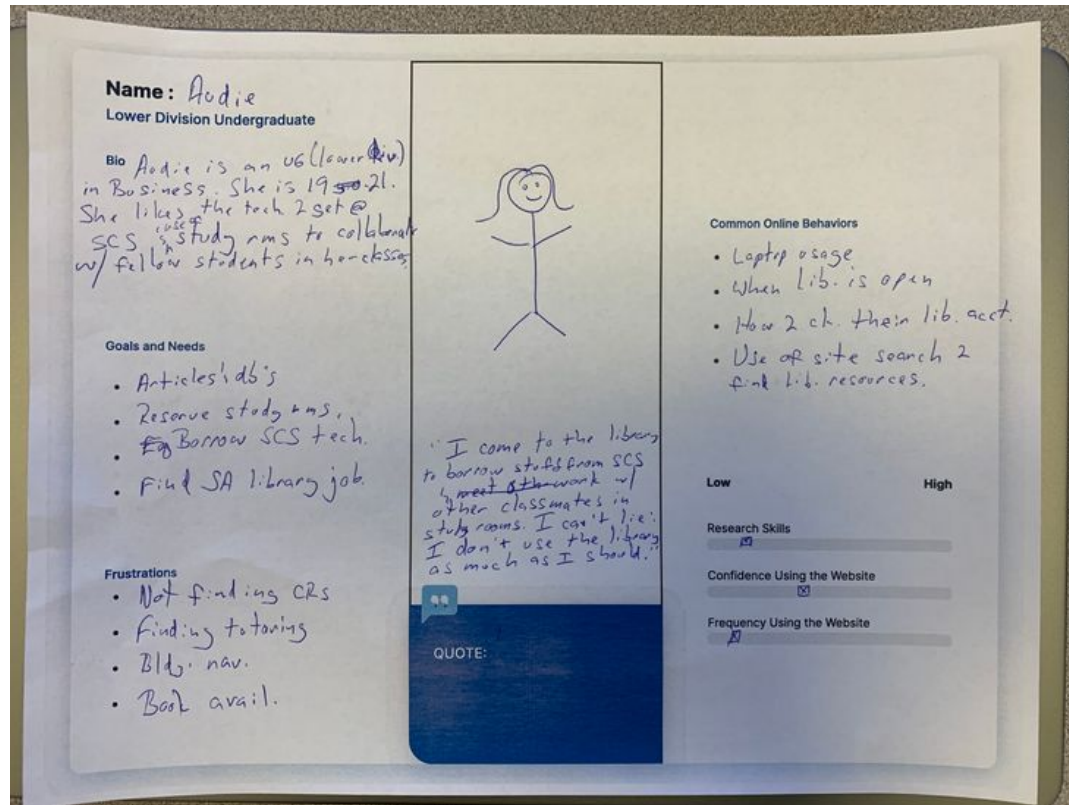 Name: Audie
Lower Division Undergraduate
Bio Audie is an UG (lower div)
in Business. She is 19 21.
She likes the tech 2 get @
SCS use of study rms to collaborate
w/ fellow students in her classes
Goals and Needs
• Articles db's
• Reserve study rms.
• Borrow SCS tech.
• Find SA library job.
Frustrations
• Not finding CRs
• Finding tutoring
• Bldg. nav.
• Book avail.
"I come to the library
to borrow stuff from SCS
work w/
other classmates in
study rooms. I can't lie:
I don't use the library
as much as I should."
QUOTE:
Common Online Behaviors
• Laptop usage
• When lib. is open
• How 2 ch. their lib. acct.
• Use of site search 2
find lib. resources.
Low High
Research Skills
Confidence Using the Website
Frequency Using the Website